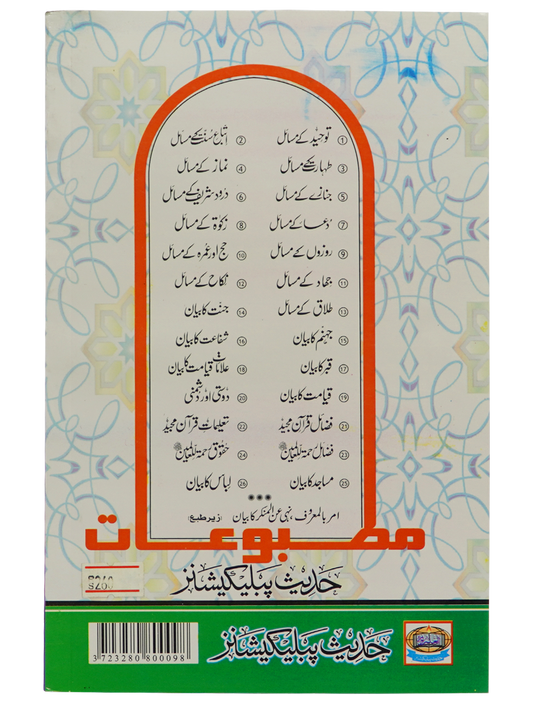 ① توحید کے مسائل ② اتباع سنت کے مسائل
③ طہارت کے مسائل ④ نماز کے مسائل
⑤ جنازے کے مسائل ⑥ درود شریف کے مسائل
⑦ دعا کے مسائل ⑧ زکوٰۃ کے مسائل
⑨ روزوں کے مسائل ⑩ حج اور عمرہ کے مسائل
⑪ جہاد کے مسائل ⑫ نکاح کے مسائل
⑬ طلاق کے مسائل ⑭ جنت کا بیان
⑮ جہنم کا بیان ⑯ شفاعت کا بیان
⑰ قبر کا بیان ⑱ علامات قیامت کا بیان
⑲ قیامت کا بیان ⑳ دوستی اور دشمنی
㉑ فضائل قرآن مجید ㉒ تعلیمات قرآن مجید
㉓ فضائل رحمۃ للعالمین ﷺ ㉔ حقوق رحمۃ للعالمین ﷺ
㉕ مساجد کا بیان ㉖ لباس کا بیان
امر بالمعروف، نہی عن المنکر کا بیان (زیر طبع)
مطبوعات
حدیث پبلیکیشنز
حدیث پبلیکیشنز
3 723280 800098